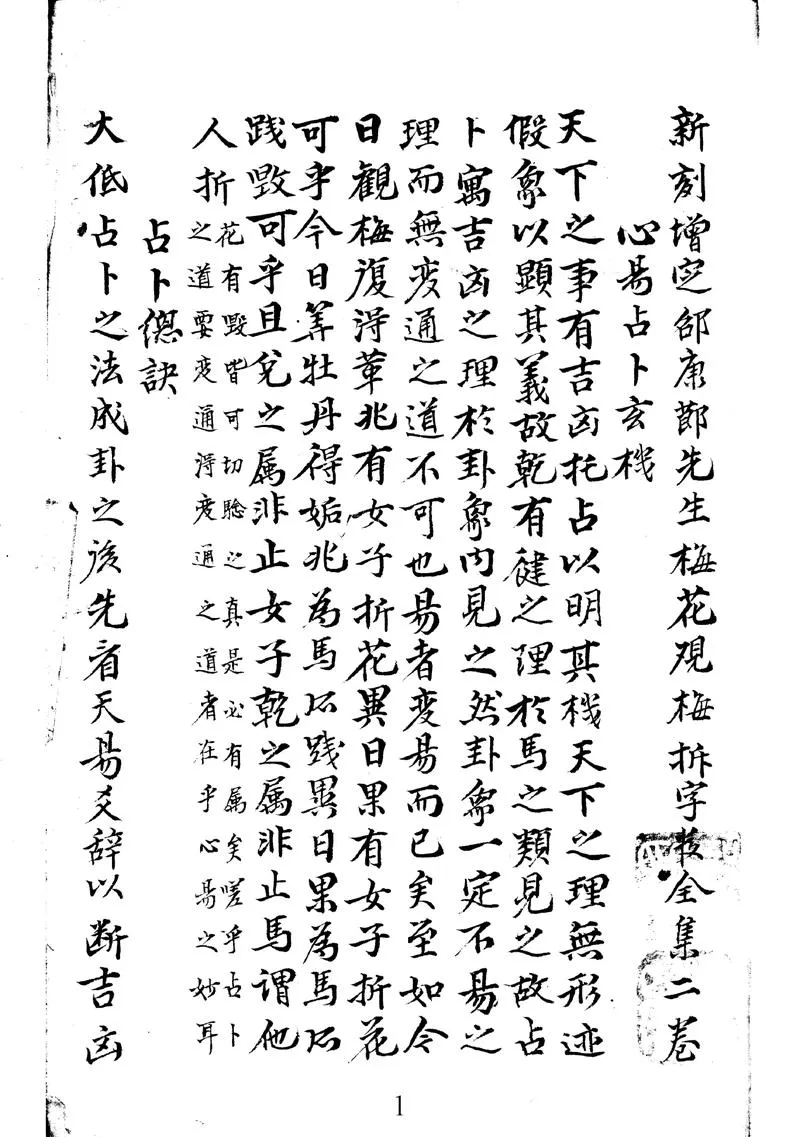 新刻增定邵康節先生梅花观梅拆字数全集二卷
心易占卜玄機
天下之事有吉凶托占以明其機天下之理無形迹
假象以顯其義故乾有健之理於馬之類見之故占
卜寓吉凶之理於卦象内見之然卦象一定不易之
理而無变通之道不可也易者变易而已矣至如今
日觀梅復得革兆有女子折花異日果有女子折花
可乎今日筭牡丹得姤兆為馬所践異日果為馬所
践毁可乎且兌之属非止女子乾之属非止馬謂他
人折花有毀皆可切驗之真是必有属矣嗟乎占卜
之道要变通得变通之道者在乎心易之妙耳
占卜總訣
大低占卜之法成卦之後先看天易爻辞以断吉凶
1